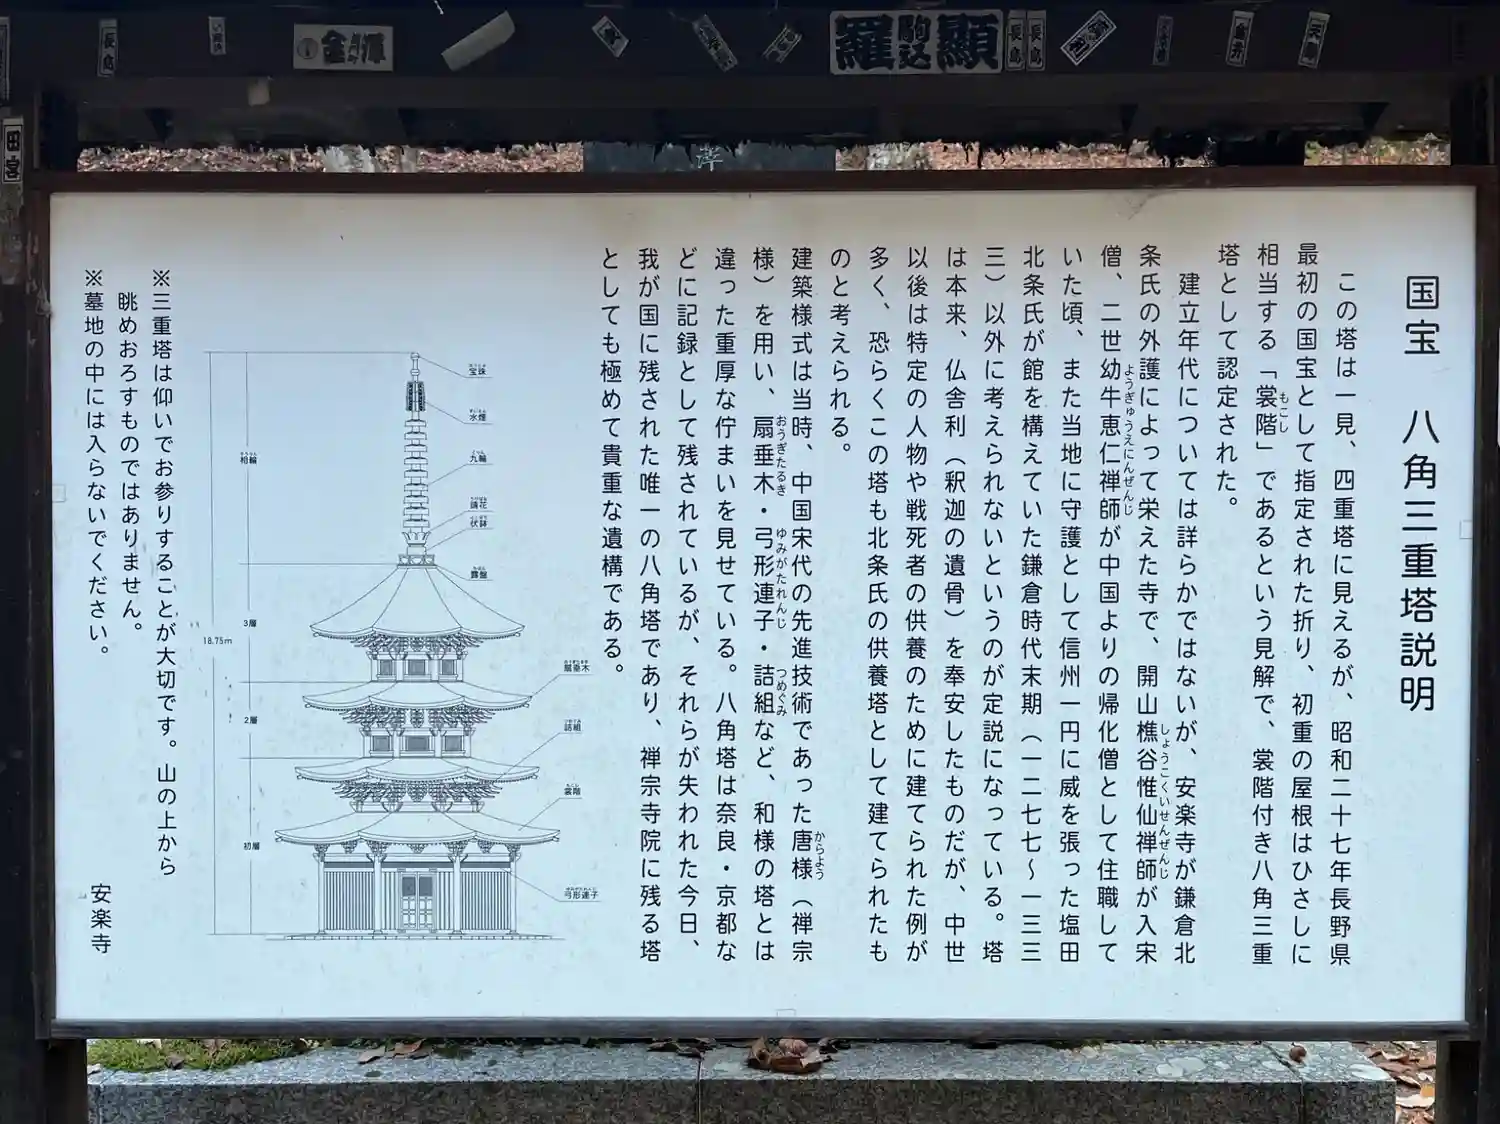 国宝　八角三重塔説明
この塔は一見、四重塔に見えるが、昭和二十七年長野県
最初の国宝として指定された折り、初重の屋根はひさしに
相当する「裳階」であるという見解で、裳階付き八角三重
もこし
塔として認定された。
建立年代については詳らかではないが、安楽寺が鎌倉北
条氏の外護によって栄えた寺で、開山樵谷惟仙禅師が入宋
しょうこくいせんぜんじ
僧、二世幼牛恵仁禅師が中国よりの帰化僧として住職して
ようぎゅうえにんぜんじ
いた頃、また当地に守護として信州一円に威を張った塩田
北条氏が館を構えていた鎌倉時代末期（一二七七～一三三
三）以外に考えられないというのが定説になっている。塔
は本来、仏舎利（釈迦の遺骨）を奉安したものだが、中世
以後は特定の人物や戦死者の供養のために建てられた例が
多く、恐らくこの塔も北条氏の供養塔として建てられたも
のと考えられる。
建築様式は当時、中国宋代の先進技術であった唐様（禅宗
からよう
様）を用い、扇垂木・弓形連子・詰組など、和様の塔とは
おうぎたるき
ゆみがたれんじ
つめぐみ
違った重厚な佇まいを見せている。八角塔は奈良・京都な
どに記録として残されているが、それらが失われた今日、
我が国に残された唯一の八角塔であり、禅宗寺院に残る塔
としても極めて貴重な遺構である。
宝珠
水煙
九輪
請花
伏鉢
露盤
扇垂木
詰組
裳階
弓形連子
相輪
3層
18.75m
2層
初層
※三重塔は仰いでお参りすることが大切です。山の上から
眺めおろすものではありません。
※墓地の中には入らないでください。
安楽寺
長島
金澤
羅
駒込
顯
長島
長島
金井
田宮